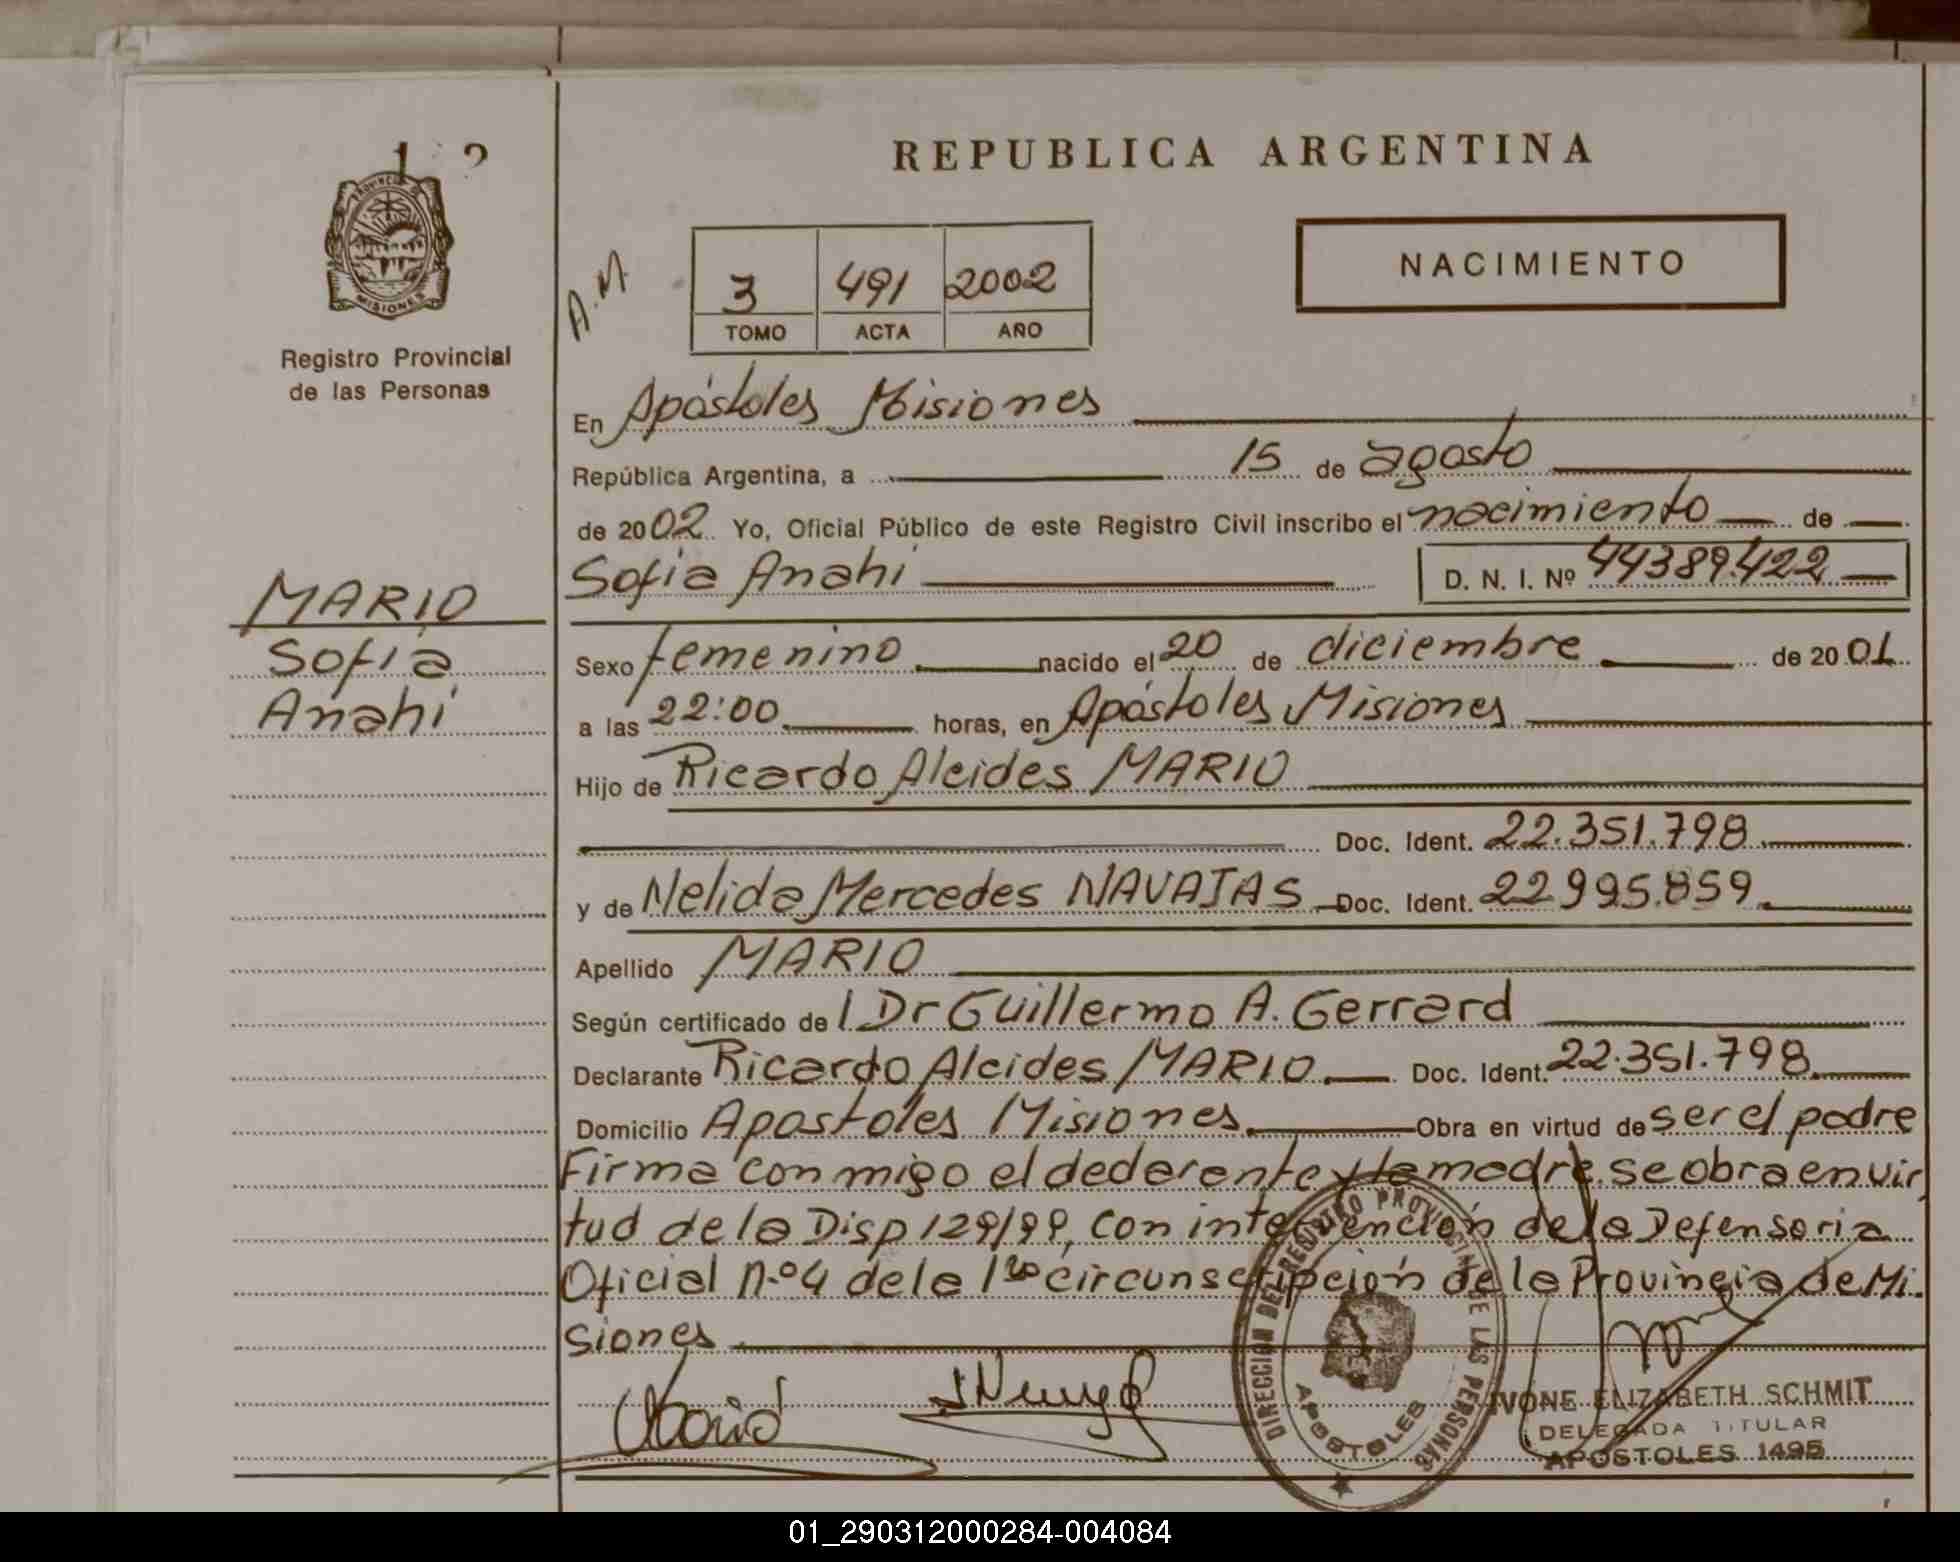 1 2
PROVINCIA DE
MISIONES
Registro Provincial
de las Personas
MARIO
Sofia
Anahi
REPUBLICA ARGENTINA
A.M.
3 491 2002
TOMO ACTA AÑO
NACIMIENTO
En Apóstoles Misiones
República Argentina, a 15 de agosto
de 2002 Yo, Oficial Público de este Registro Civil inscribo el nacimiento de
Sofia Anahi D. N. I. Nº 44389.422
Sexo femenino nacido el 20 de diciembre de 2001
a las 22:00 horas, en Apóstoles Misiones
Hijo de Ricardo Alcides MARIO
Doc. Ident. 22.351.798
y de Nelida Mercedes NAVAJAS Doc. Ident. 22995.859
Apellido MARIO
Según certificado del Dr Guillermo A. Gerrard
Declarante Ricardo Alcides MARIO Doc. Ident. 22.351.798
Domicilio Apostoles Misiones Obra en virtud de ser el padre
Firma conmigo el declarante y la madre. se obra en vir
tud de la Disp 129/99, con intervención de la Defensoria
Oficial n.º 4 de la 1ra circunscripción de la Provincia de Mi
siones
DIRECCION DEL REGISTRO PROVINCIAL DE LAS PERSONAS
APOSTOLES
IVONE ELIZABETH SCHMIT
DELEGADA TITULAR
APOSTOLES 1495
01_290312000284-004084